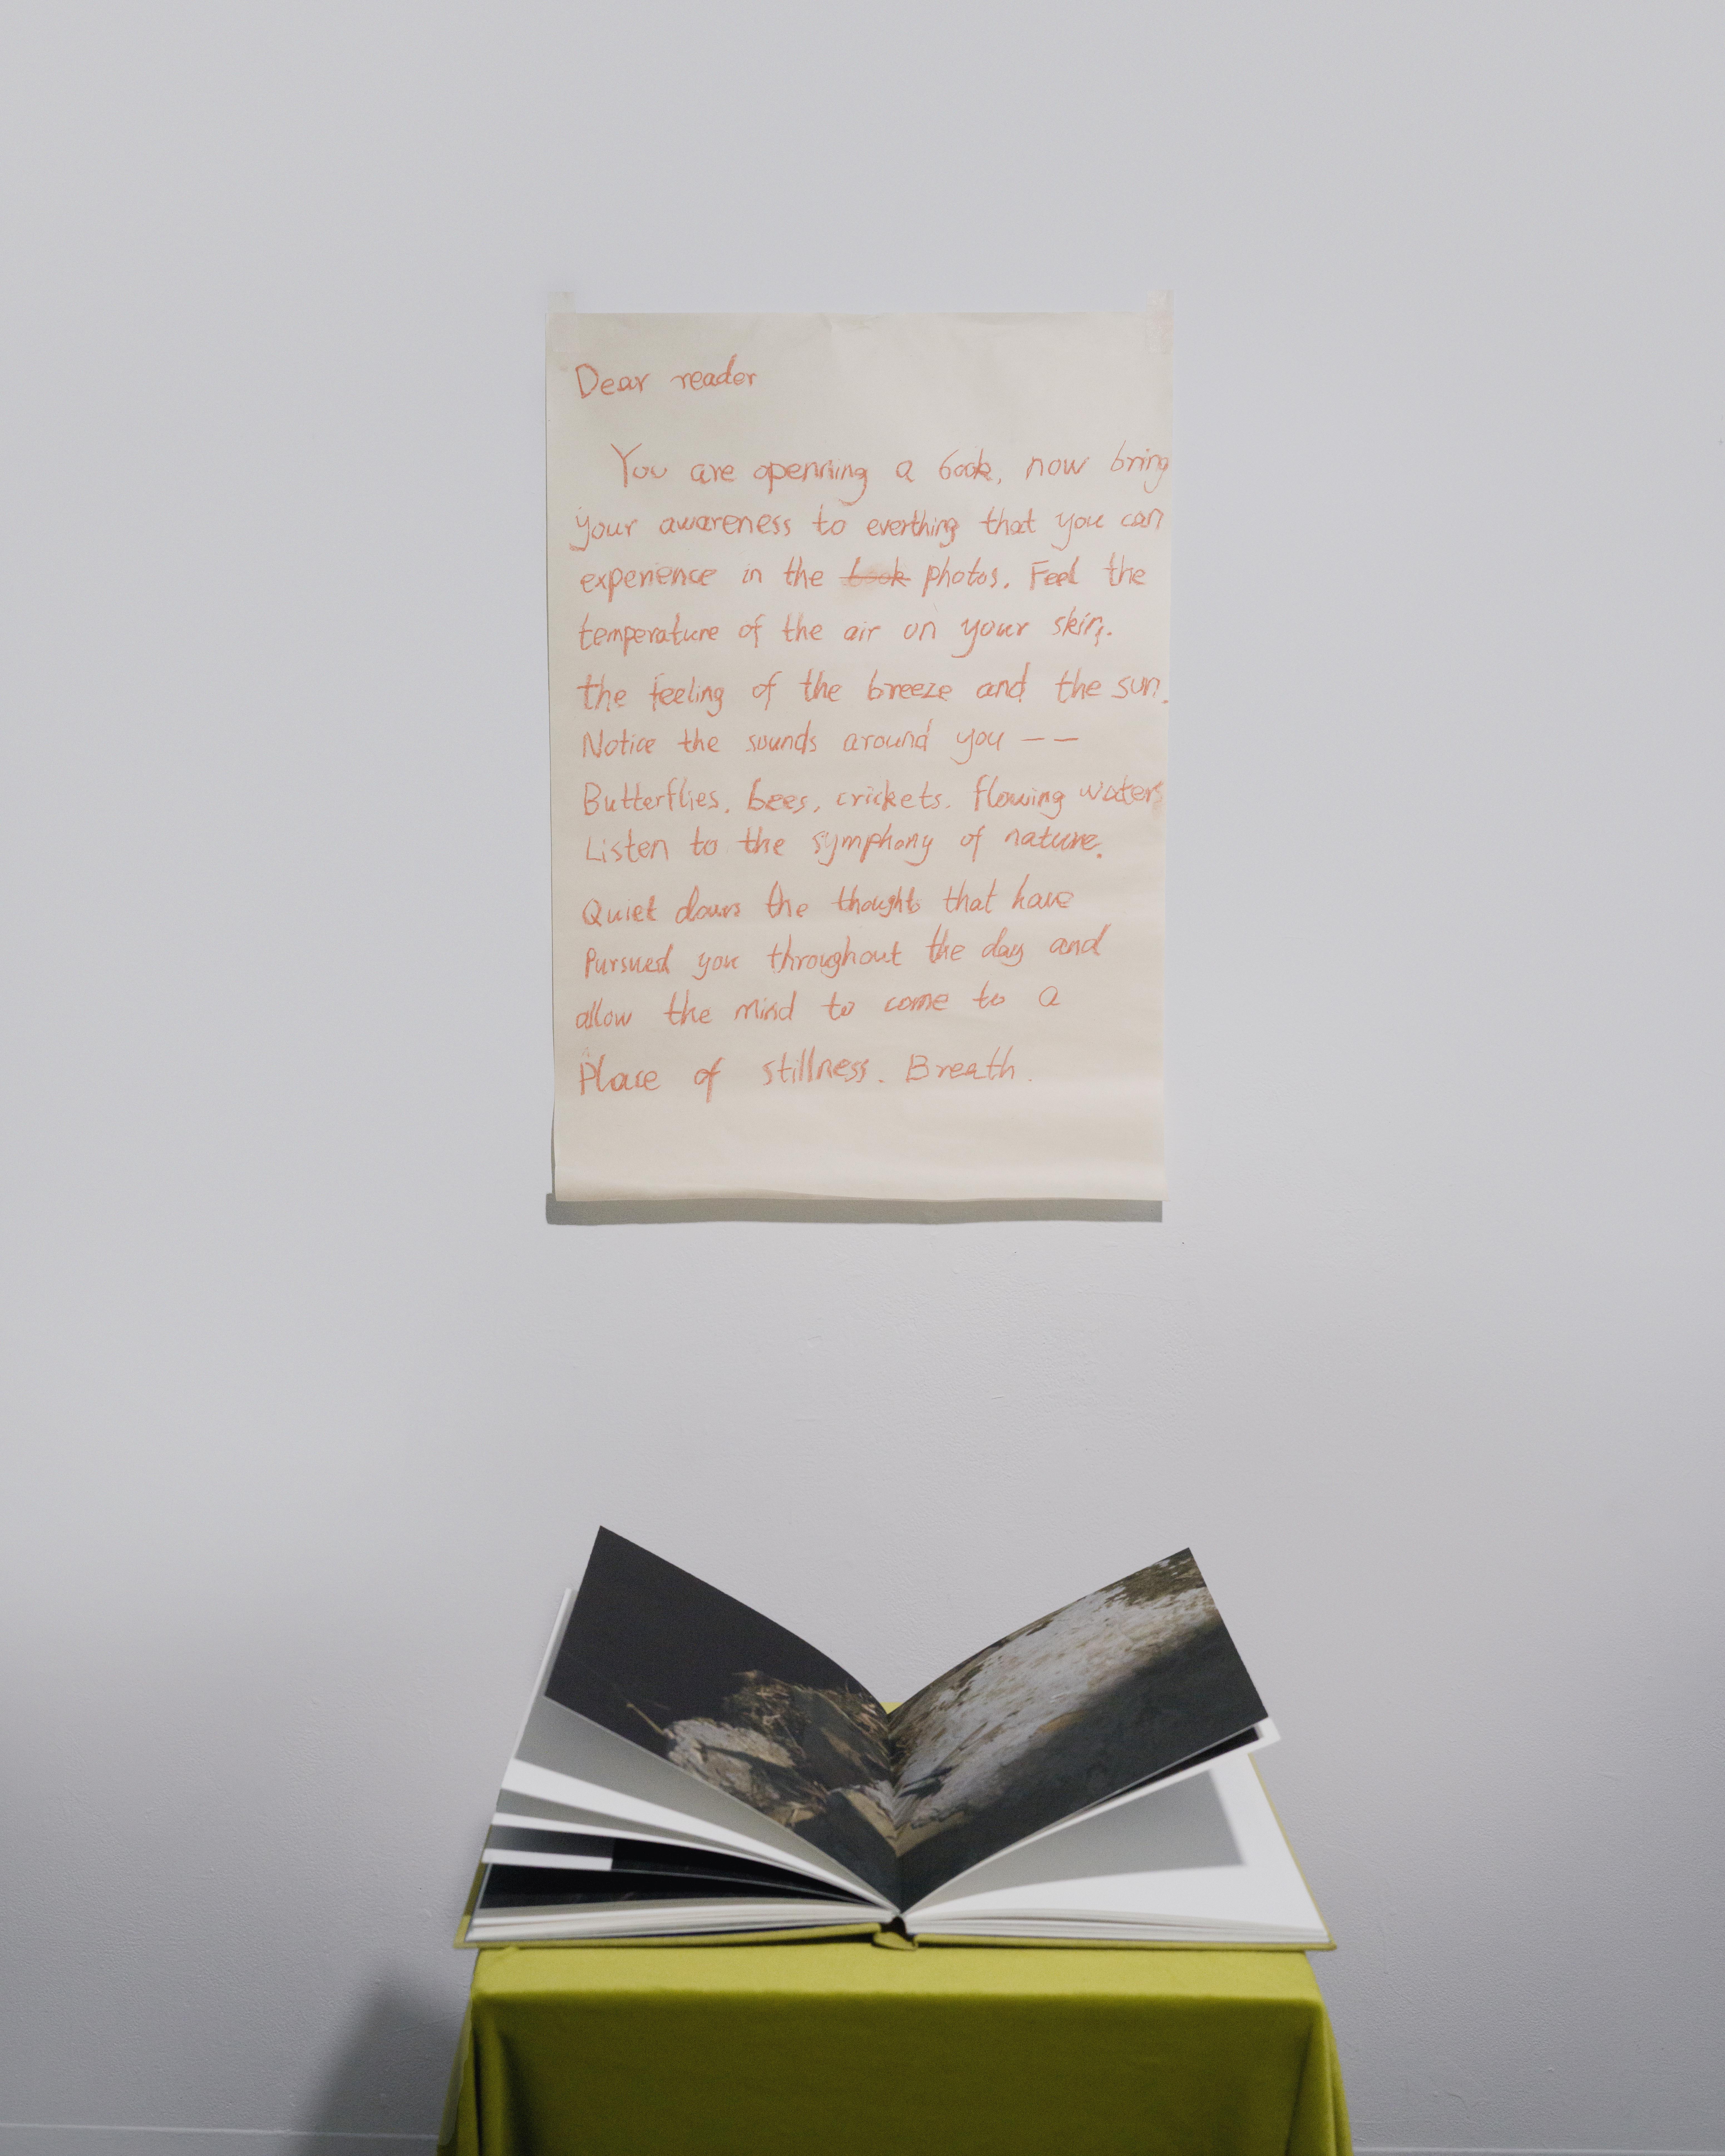 Dear reader
You are openning a book, now bring
your awareness to everthing that you can
experience in the book photos. Feel the
temperature of the air on your skin,.
the feeling of the breeze and the sun.
Notice the sounds around you — —
Butterflies, bees, crickets, flowing water,
Listen to the symphony of nature.
Quiet down the thoughts that have
Pursued you throughout the day and
allow the mind to come to a
Place of stillness. Breath.